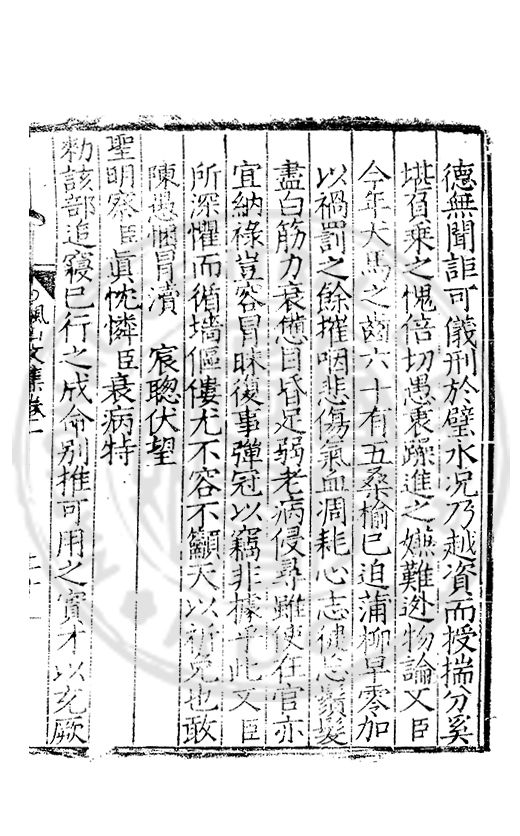 德無聞詎可儀刑於壁水况乃越資而授揣分奚
堪負乗之愧倍切愚衷躁進之嫌難逃物論又臣
今年犬馬之齒六十有五桑榆已迫蒲柳早零加
以禍罰之餘摧咽悲傷氣血凋耗心志健忘鬚髮
盡白筋力衰憊目昏足弱老病侵尋雖使在官亦
宜納祿豈容冒昧復事彈冠以竊非據乎此又臣
所深懼而循墻傴僂尤不容不籲天以祈免也敢
陳愚悃冒瀆宸聦伏望
聖明察臣眞忱憐臣衰病特
勑該部追寢已行之成命别推可用之實才以充厥
風山文集卷二